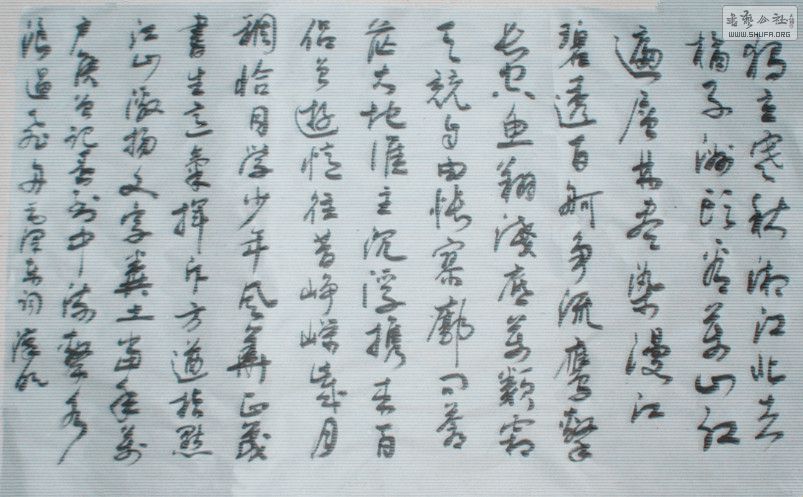 独立寒秋湘江北去
橘子洲頭看萬山紅
遍層林盡染漫江
碧透百舸争流鷹擊
長空魚翔淺底萬類霜
天競自由悵寥廓問蒼
茫大地誰主沉浮携来百
侣曾遊憶往昔崢嶸歲月
稠恰同學少年風華正茂
書生意氣揮斥方遒指點
江山激揚文字糞土當年萬
户侯曾記否到中流擊水
浪遏飛舟毛澤東詞
書藝公社
WWW.SHUFA.ORG